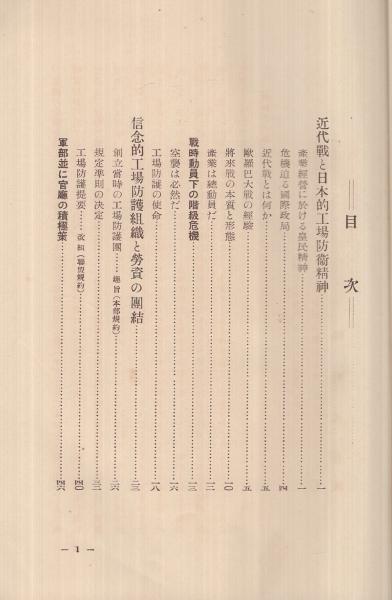 目次
近代戰と日本的工場防衞精神……一
産業經營に於ける皇民精神……一
危機迫る國際政局……四
近代戰とは何か……五
歐羅巴大戰の經驗……五
將來戰の本質と形態……一〇
産業は總動員だ……一二
戰時動員下の階級危機……一三
空襲は必然だ……一六
工場防護の使命……一八
信念的工場防護組織と勞資の團結……二三
創立當時の工場防護團……趣旨(本部規約)……二六
規定準則の決定……三二
工場防護提要……改組(聯盟規約)……四〇
軍部並に官廳の積極策……四六
— 1 —